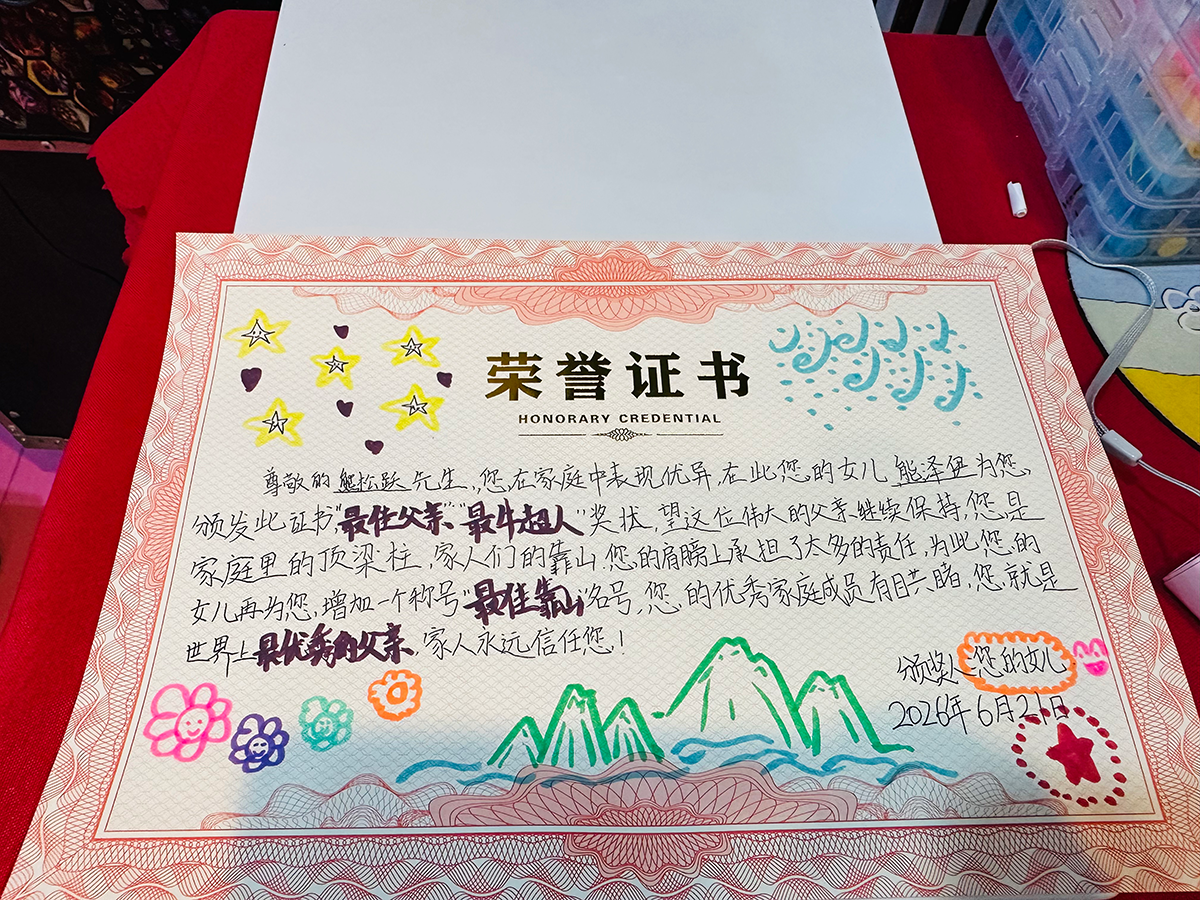 荣誉证书
HONORARY CREDENTIAL
尊敬的熊松跃先生,您在家庭中表现优异,在此您的女儿熊泽堡为您
颁发此证书"最佳父亲、最牛超人"奖状,望这位伟大的父亲继续保持,您是
家庭里的顶梁柱,家人们的靠山,您的肩膀上承担了太多的责任,为此您的
女儿再为您,增加一个称号"最佳靠山"名号,您,的优秀家庭成员有目共睹,您,就是
世界上最优秀的父亲,家人永远信任您!
颁奖人您的女儿
2026年6月21日